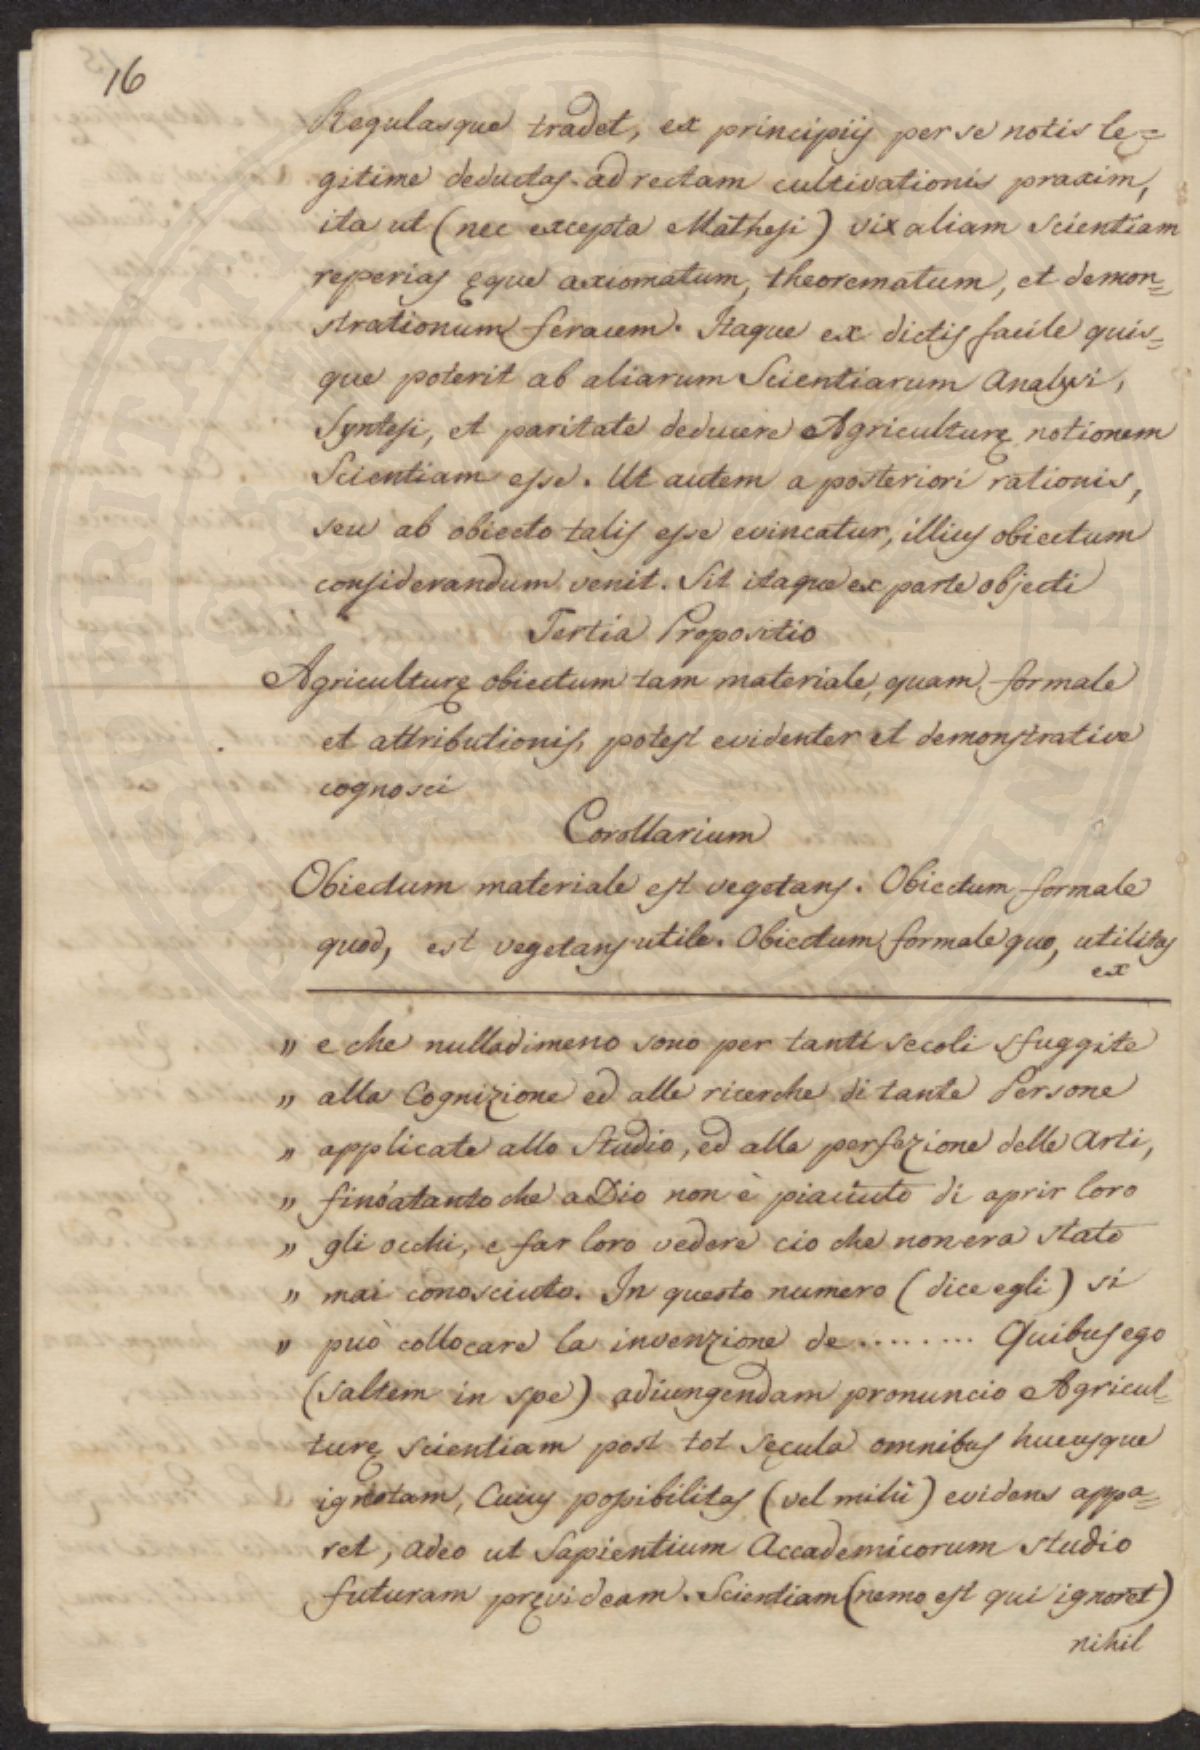 16
Regulasque tradet, ex principijs per se notis le=
gitime deductas ad rectam cultivationis praxim,
ita ut (nec excepta Mathesi) vix aliam Scientiam
reperias ęque axiomatum, theorematum, et demon=
strationum feracem. Itaque ex dictis facile quis=
que poterit ab aliarum Scientiarum Analysi,
Syntesi, et paritate deducere Agriculturę notionem
Scientiam esse. Ut autem a posteriori rationis,
seu ab obiecto talis esse evincatur, illius obiectum
considerandum venit. Sit itaque ex parte objecti
Tertia Propositio
Agriculturę obiectum tam materiale, quam formale
et attributionis, potest evidenter et demonstrative
cognosci
Corollarium
Obiectum materiale est vegetans. Obiectum formale
quod, est vegetans utile. Obiectum formale quo, utilitas
ex
" e che nulladimeno sono per tanti secoli sfuggite
" alla Cognizione ed alle ricerche di tante Persone
" applicate allo Studio, ed alla perfezione delle Arti,
" fino a tanto che a Dio non è piaciuto di aprir loro
" gli occhi, e far loro vedere cio che non era stato
" mai conosciuto. In questo numero (dice egli) si
" può collocare la invenzione de ......... Quibus ego
(saltem in spe) adiungendam pronuncio Agricul=
turę scientiam post tot sęcula omnibus hucusque
ignotam, Cuius possibilitas (vel mihi) evidens appa=
ret, adeo ut Sapientium Accademicorum studio
futuram pręvideam. Scientiam (nemo est qui ignoret)
nihil